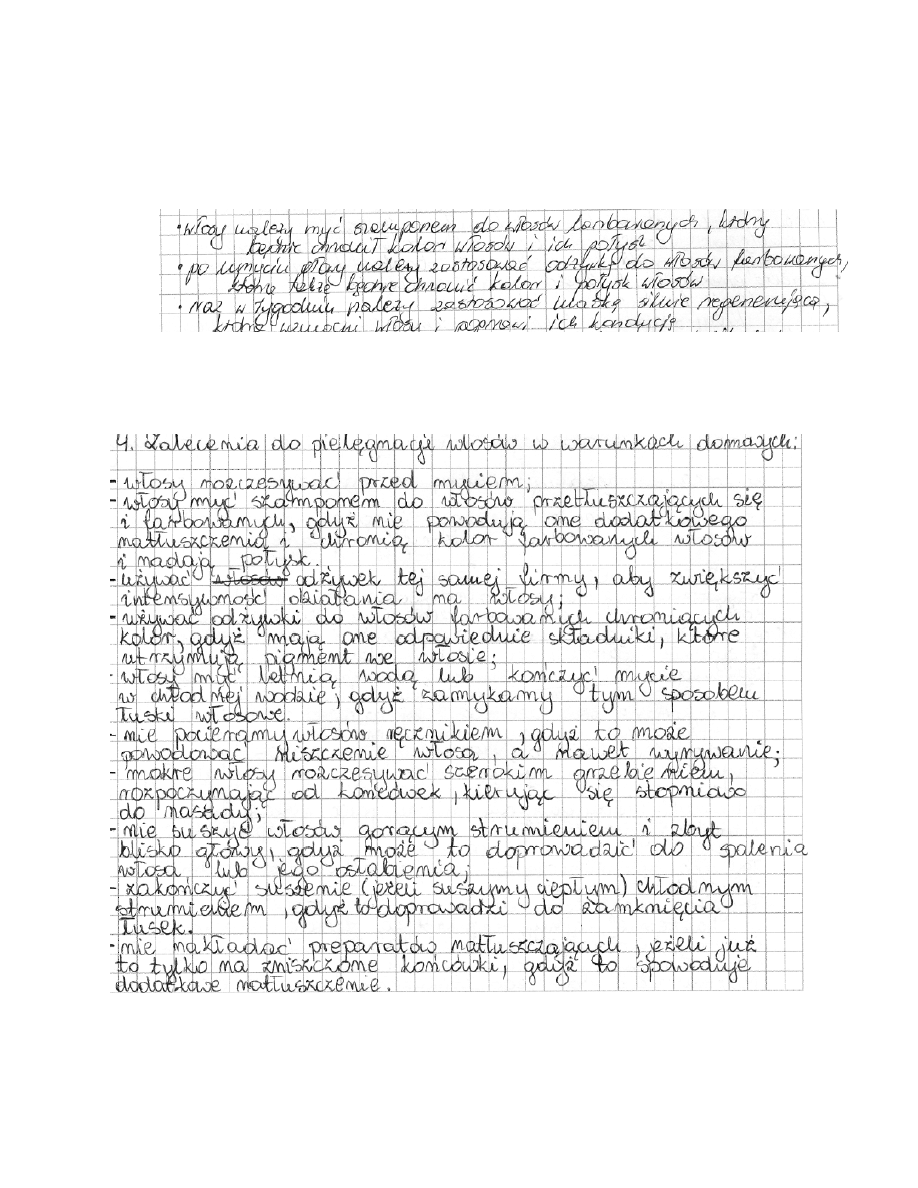 • włosy należy myć szamponem do włosów farbowanych, który
będzie chronił kolor włosów i ich połysk
• po umyciu głowy należy zastosować odżywkę do włosów farbowanych,
która także będzie chronić kolor i połysk włosów
• raz w tygodniu należy zastosować maskę silnie regenerującą,
która wzmocni włosy i poprawi ich kondycję
4. Zalecenia do pielęgnacji włosów w warunkach domowych:
- włosy rozczesywać przed myciem;
- włosy myć szamponem do włosów przetłuszczających się
i farbowanych, gdyż nie powodują one dodatkowego
natłuszczenia i chronią kolor farbowanych włosów
i nadają połysk.
- używać włosów odżywek tej samej firmy, aby zwiększyć
intensywność działania na włosy;
- używać odżywki do włosów farbowanych chroniących
kolor, gdyż mają one odpowiednie składniki, które
utrzymują pigment we włosie;
- włosy myć letnią wodą lub kończyć mycie
w chłodnej wodzie, gdyż zamykamy tym sposobem
łuski włosowe.
- nie pocieramy włosów ręcznikiem, gdyż to może
powodować niszczenie włosa, a nawet wyrywanie;
- mokre włosy rozczesywać szerokim grzebieniem,
rozpoczynając od końcówek, kierując się stopniowo
do nasady;
- nie suszyć włosów gorącym strumieniem i zbyt
blisko głowy, gdyż może to doprowadzić do spalenia
włosa lub jego osłabienia;
- zakończyć suszenie (jeżeli suszymy ciepłym) chłodnym
strumieniem, gdyż to doprowadzi do zamknięcia
łusek.
- nie nakładać preparatów natłuszczających, jeżeli już
to tylko na zniszczone końcówki, gdyż to spowoduje
dodatkowe natłuszczenie.